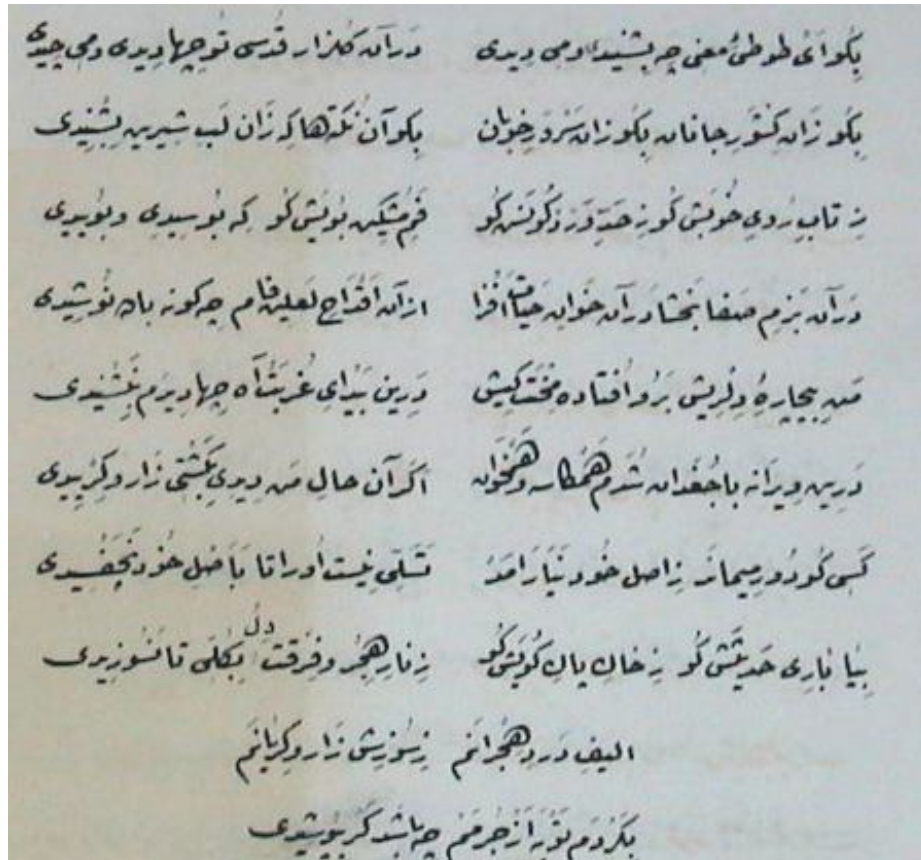 بگو ای طوطیٔ معنی چه بشنیدی و می دیدی در آن گلزار قدسی تو چها دیدی و می چیدی
بگو زان کشور جانان بگو زان سرور خوبان بگو آن نکتهها که زان لب شیرین بشنیدی
ز تاب روی خوبش گو ز حد ورد گونش گو فم مشکین بویش گو که بوسیدی و بوییدی
در آن بزم صفا بخشا در آن خوان حیات افزا از آن اقداح لعلین فام چه گونه باده نوشیدی
من بیچارهٔ دلریش برو افتاده محنت کیش درین بیدای غربت آه چها دیدم نشنیدی
درین ویرانه با جغدان شدم همکاسه و همخوان اگر آن حال من دیدی بگشتی زار و گرییدی
کسی کو دور میماند ز اصل خود نیارامد تسلی نیست او را تا باصل خود نچفسیدی
بیا باری حدیثش گو ز خاک کویش گو ز نار هجر و فرقت دل بکلی تا نسوزیدی
الیف درد هجرانم ز سوزش زار و گریانم
بکردم توبه از جرمم چه باشد گر بپوشیدی